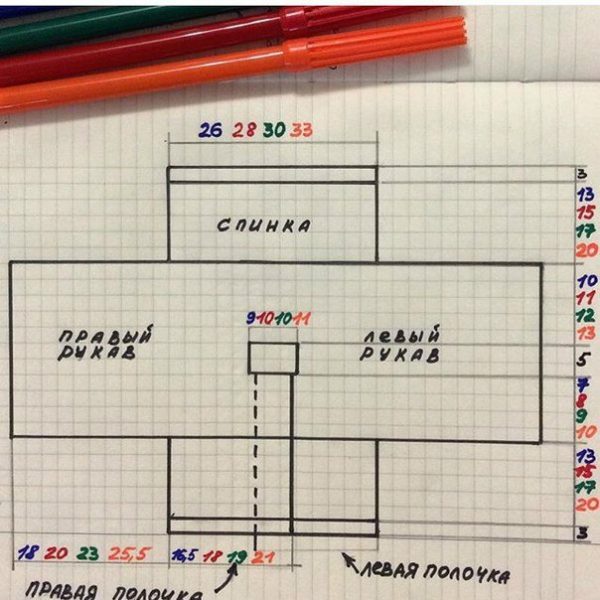 26 28 30 33
3
13
15
17
20
СПИНКА
10
11
12
13
9 10 10 11
ПРАВЫЙ
РУКАВ
ЛЕВЫЙ
РУКАВ
5
7
8
9
10
13
15
17
20
3
18 20 23 25,5 16,5 18 19 21
ПРАВАЯ ПОЛОЧКА
ЛЕВАЯ ПОЛОЧКА